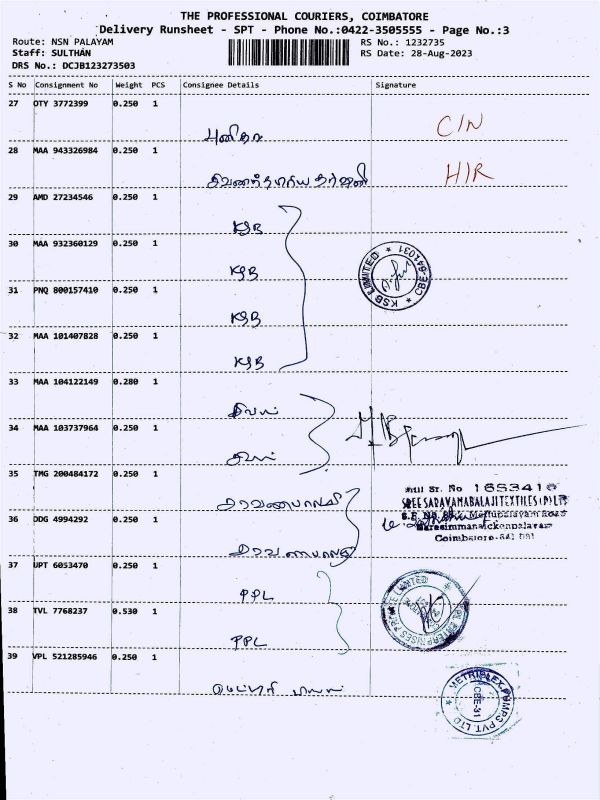 THE PROFESSIONAL COURIERS, COIMBATORE
Delivery Runsheet - SPT - Phone No.:0422-3505555 - Page No.:3
Route: NSN PALAYAM
RS No.: 1232735
Staff: SULTHAN
RS Date: 28-Aug-2023
DRS No.: DCJB123273503
S No Consignment No Weight PCS Consignee Details Signature
27 OTY 3772399 0.250 1
புனிதா C/N
28 MAA 943326984 0.250 1
H/R
29 AMD 27234546 0.250 1
KSB
30 MAA 932360129 0.250 1
KSB
KSB LIMITED * CBE-641031 *
31 PNQ 800157410 0.250 1
KSB
32 MAA 101407828 0.250 1
KSB
33 MAA 104122149 0.280 1
34 MAA 103737964 0.250 1
35 TMG 200484172 0.250 1
சரவணபாலாஜி
Sr. No 1653410
SREE SARAVANABALAJI TEXTILES (P) LTD
Mettupalayam Road
Narasimmanaickenpalayam
Coimbatore-641 031
36 DDG 4994292 0.250 1
சரவணபாலாஜி
37 UPT 6053470 0.250 1
PPL
PPL ENTERPRISES PRIVATE LIMITED
38 TVL 7768237 0.530 1
PPL
39 VPL 521285946 0.250 1
METRIPLEX PUMPS PVT. LTD
CBE-31